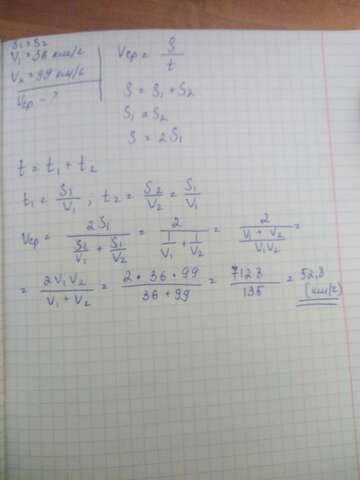 S₁ = S₂
V₁ = 36 км/г
V₂ = 99 км/г
Vср - ?
Vср = S/t
S = S₁ + S₂
S₁ = S₂
S = 2S₁
t = t₁ + t₂
t₁ = S₁/V₁ ; t₂ = S₂/V₂ = S₁/V₂
Vср = 2S₁/(S₁/V₁ + S₁/V₂) = 2/(1/V₁ + 1/V₂) = 2/((V₁ + V₂)/(V₁V₂)) =
= 2V₁V₂/(V₁ + V₂) = 2 · 36 · 99/(36 + 99) = 7128/135 = 52,8 (км/г)